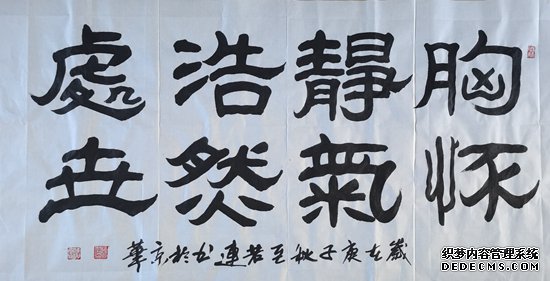 胸怀
靜氣
浩然
處世
歲在庚子秋若連书於京華
织梦内容管理系统
DEDECMS.COM